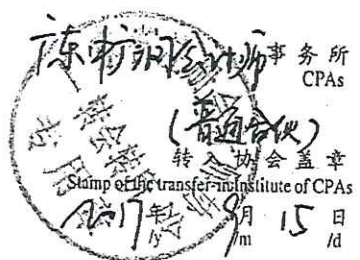 广东中润会计师事务所
CPAs
(普通合伙)
转入协会盖章
Stamp of the transfer-in Institute of CPAs
2017年9月15日
/y /m /d